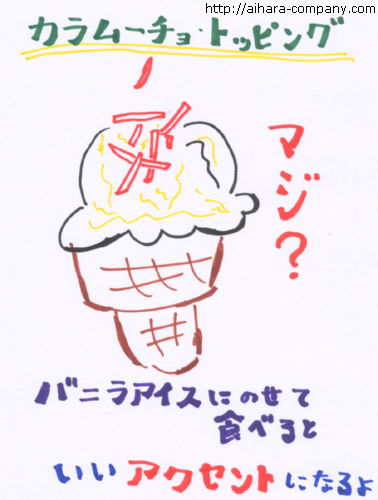 http://aihara-company.com
カラムーチョ・トッピング
マジ?
バニラアイスにのせて
食べると
いいアクセントになるよ